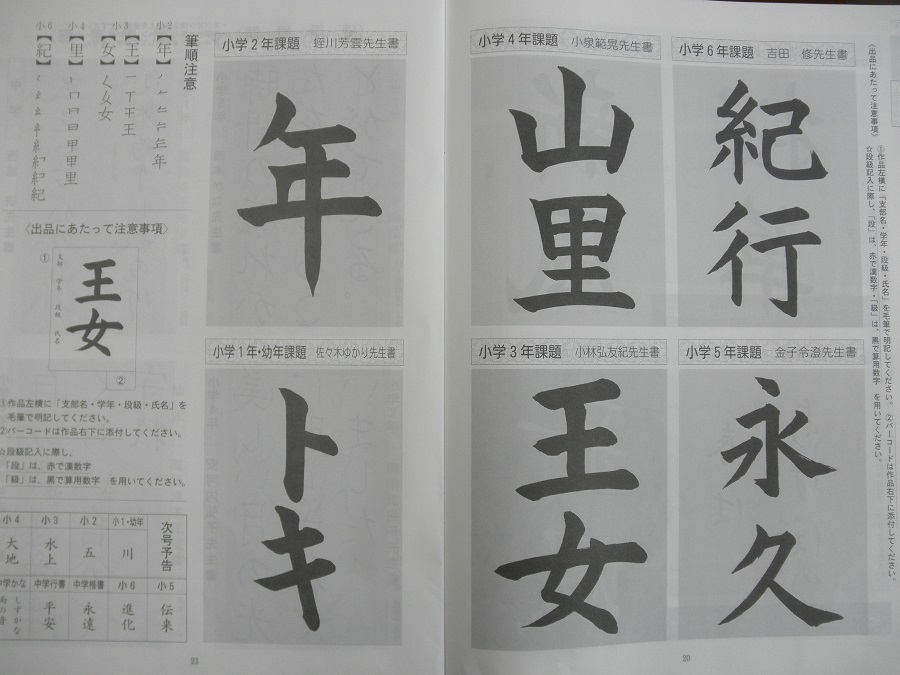 〈出品にあたって注意事項〉
①作品左横に「支部名・学年・段級・氏名」を毛筆で明記してください。 ②バーコードは作品右下に添付してください。
☆段級記入に際し、「段」は、赤で漢数字・「級」は、黒で算用数字 を用いてください。
小学6年課題 吉田 修先生書
紀行
小学4年課題 小泉範晃先生書
山里
小学5年課題 金子令澄先生書
永久
小学3年課題 小林弘友紀先生書
王女
20
小学2年課題 蛭川芳雲先生書
年
小学1年・幼年課題 佐々木ゆかり先生書
トキ
筆順注意
小2【年】
年
小3【王】
一丁干王
【女】
く 女
小4【里】
里
小6【紀】
紀
〈出品にあたって注意事項〉
①
支部 学年 段級 氏名
王女
②
①作品左横に「支部名・学年・段級・氏名」を
毛筆で明記してください。
②バーコードは作品右下に添付してください。
☆段級記入に際し、
「段」は、赤で漢数字
「級」は、黒で算用数字 を用いてください。
次号予告
小1・幼年 川
小2 五
小3 水上
小4 大地
小5 伝来
小6 進化
中学楷書 永遠
中学行書 平安
中学かな しずかな雨の音
21